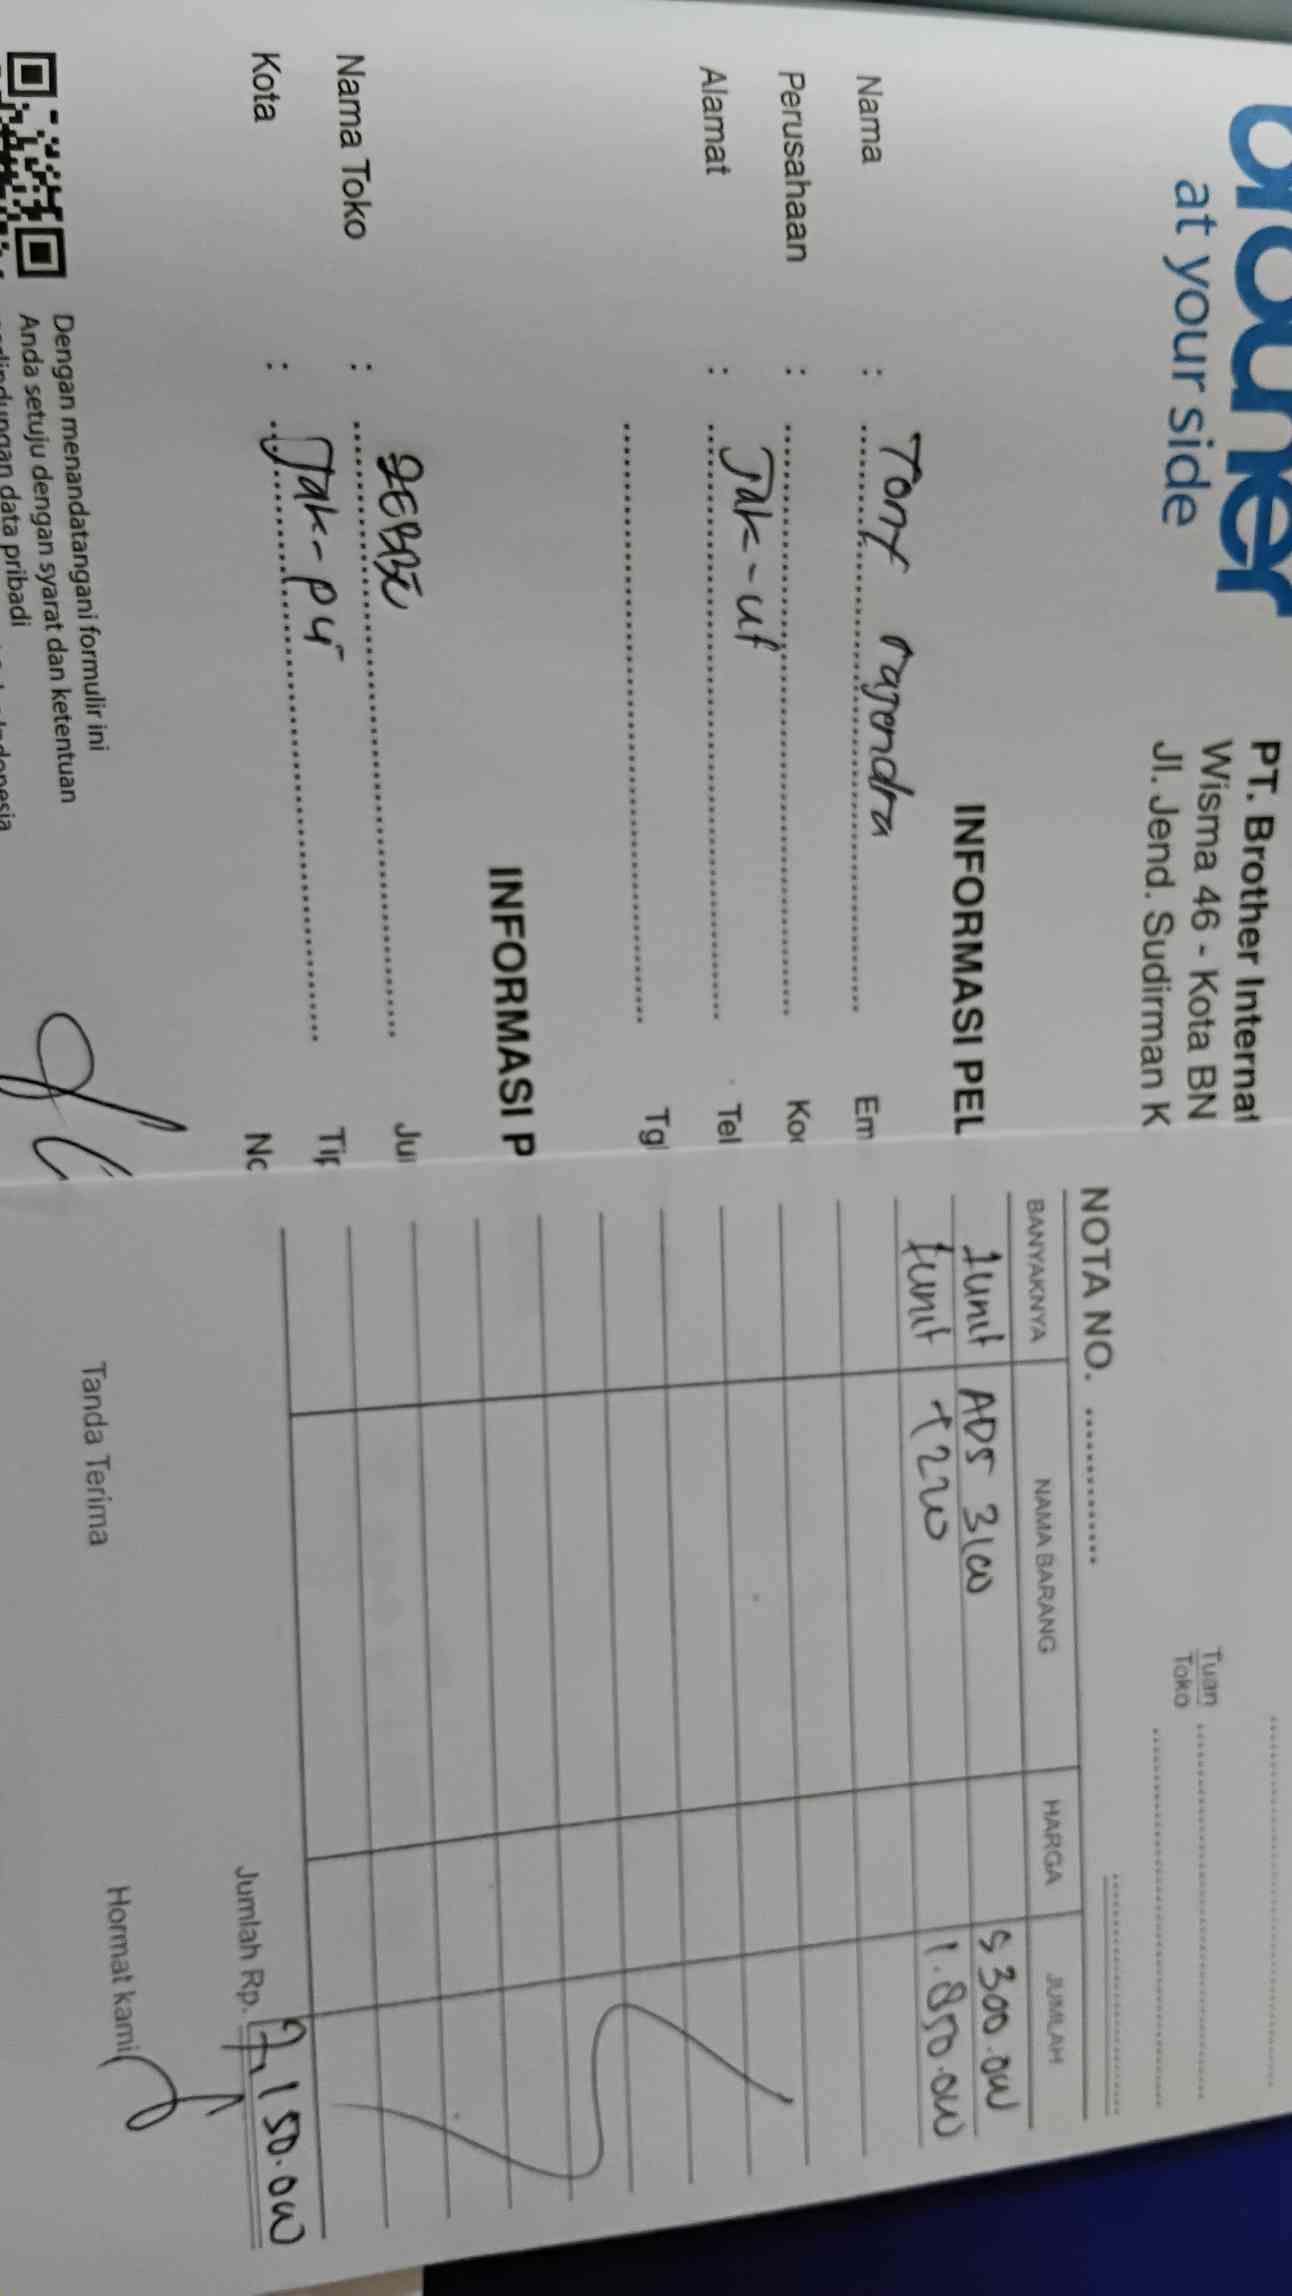 brother
at your side
PT. Brother Internat
Wisma 46 - Kota BN
Jl. Jend. Sudirman K
INFORMASI PEL
Nama : Tony ragendra
Em
Perusahaan :
Kor
Alamat : Jak-ut
Tel
Tgl
INFORMASI P
Nama Toko :
Jui
Kota : Jak-pu
Tip
No
Dengan menandatangani formulir ini
Anda setuju dengan syarat dan ketentuan
perlindungan data pribadi
Tuan
Toko
NOTA NO.
BANYAKNYA NAMA BARANG HARGA JUMLAH
1unit ADS 3100 5300.000
1unit T220 1.850.000
Jumlah Rp. 7,150.000
Tanda Terima Hormat kami